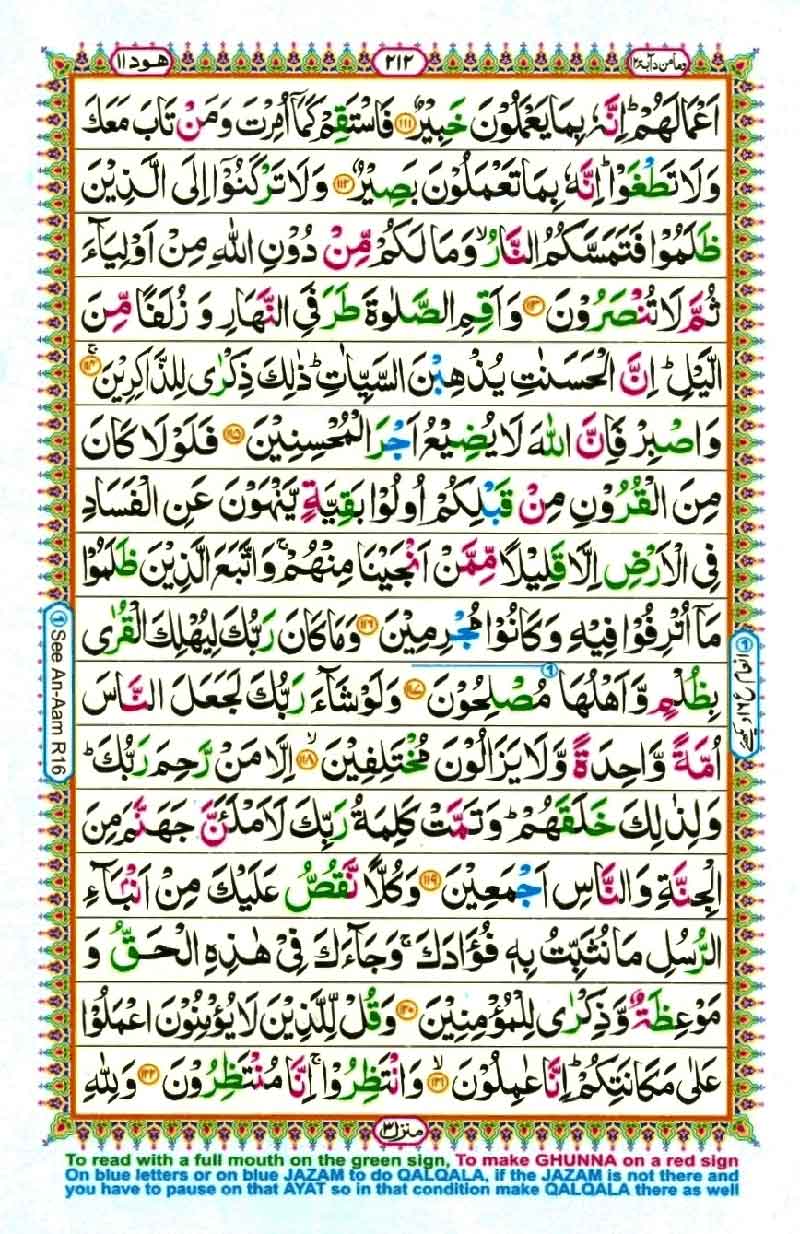 ھود ۱۱
۲۱۲
ومامن دآبة ۱۲
اَعْمَالَهُمْ ؕ اِنَّهٗ بِمَا يَعْمَلُوْنَ خَبِيْرٌ ﴿۱۱۱﴾ فَاسْتَقِمْ كَمَاۤ اُمِرْتَ وَمَنْ تَابَ مَعَكَ
وَلَا تَطْغَوْا ؕ اِنَّهٗ بِمَا تَعْمَلُوْنَ بَصِيْرٌ ﴿۱۱۲﴾ وَلَا تَرْكَنُوْۤا اِلَى الَّذِيْنَ
ظَلَمُوْا فَتَمَسَّكُمُ النَّارُ ۙ وَمَا لَكُمْ مِّنْ دُوْنِ اللّٰهِ مِنْ اَوْلِيَآءَ
ثُمَّ لَا تُنْصَرُوْنَ ﴿۱۱۳﴾ وَاَقِمِ الصَّلٰوةَ طَرَفَىِ النَّهَارِ وَ زُلَفًا مِّنَ
الَّيْلِ ؕ اِنَّ الْحَسَنٰتِ يُذْهِبْنَ السَّيِّاٰتِ ؕ ذٰلِكَ ذِكْرٰى لِلذّٰكِرِيْنَ ۚ ﴿۱۱۴﴾
وَاصْبِرْ فَاِنَّ اللّٰهَ لَا يُضِيْعُ اَجْرَ الْمُحْسِنِيْنَ ﴿۱۱۵﴾ فَلَوْلَا كَانَ
مِنَ الْقُرُوْنِ مِنْ قَبْلِكُمْ اُولُوْا بَقِيَّةٍ يَّنْهَوْنَ عَنِ الْفَسَادِ
فِى الْاَرْضِ اِلَّا قَلِيْلًا مِّمَّنْ اَنْجَيْنَا مِنْهُمْ ۚ وَاتَّبَعَ الَّذِيْنَ ظَلَمُوْا
مَاۤ اُتْرِفُوْا فِيْهِ وَكَانُوْا مُجْرِمِيْنَ ﴿۱۱۶﴾ وَمَا كَانَ رَبُّكَ لِيُهْلِكَ الْقُرٰى
بِظُلْمٍ وَّاَهْلُهَا مُصْلِحُوْنَ ﴿۱۱۷﴾ وَلَوْ شَآءَ رَبُّكَ لَجَعَلَ النَّاسَ
اُمَّةً وَّاحِدَةً وَّلَا يَزَالُوْنَ مُخْتَلِفِيْنَ ۙ ﴿۱۱۸﴾ اِلَّا مَنْ رَّحِمَ رَبُّكَ ؕ
وَلِذٰلِكَ خَلَقَهُمْ ؕ وَتَمَّتْ كَلِمَةُ رَبِّكَ لَاَمْلَـَٔنَّ جَهَنَّمَ مِنَ
الْجِنَّةِ وَالنَّاسِ اَجْمَعِيْنَ ﴿۱۱۹﴾ وَكُلًّا نَّقُصُّ عَلَيْكَ مِنْ اَنْۢبَآءِ
الرُّسُلِ مَا نُثَبِّتُ بِهٖ فُؤَادَكَ ۚ وَجَآءَكَ فِىْ هٰذِهِ الْحَقُّ وَ
مَوْعِظَةٌ وَّذِكْرٰى لِلْمُؤْمِنِيْنَ ﴿۱۲۰﴾ وَقُلْ لِّلَّذِيْنَ لَا يُؤْمِنُوْنَ اعْمَلُوْا
عَلٰى مَكَانَتِكُمْ ؕ اِنَّا عٰمِلُوْنَ ۙ ﴿۱۲۱﴾ وَانْتَظِرُوْا ۚ اِنَّا مُنْتَظِرُوْنَ ﴿۱۲۲﴾ وَلِلّٰهِ
① See An-Aam R16
منزل ۳
To read with a full mouth on the green sign, To make GHUNNA on a red sign
On blue letters or on blue JAZAM to do QALQALA, if the JAZAM is not there and
you have to pause on that AYAT so in that condition make QALQALA there as well